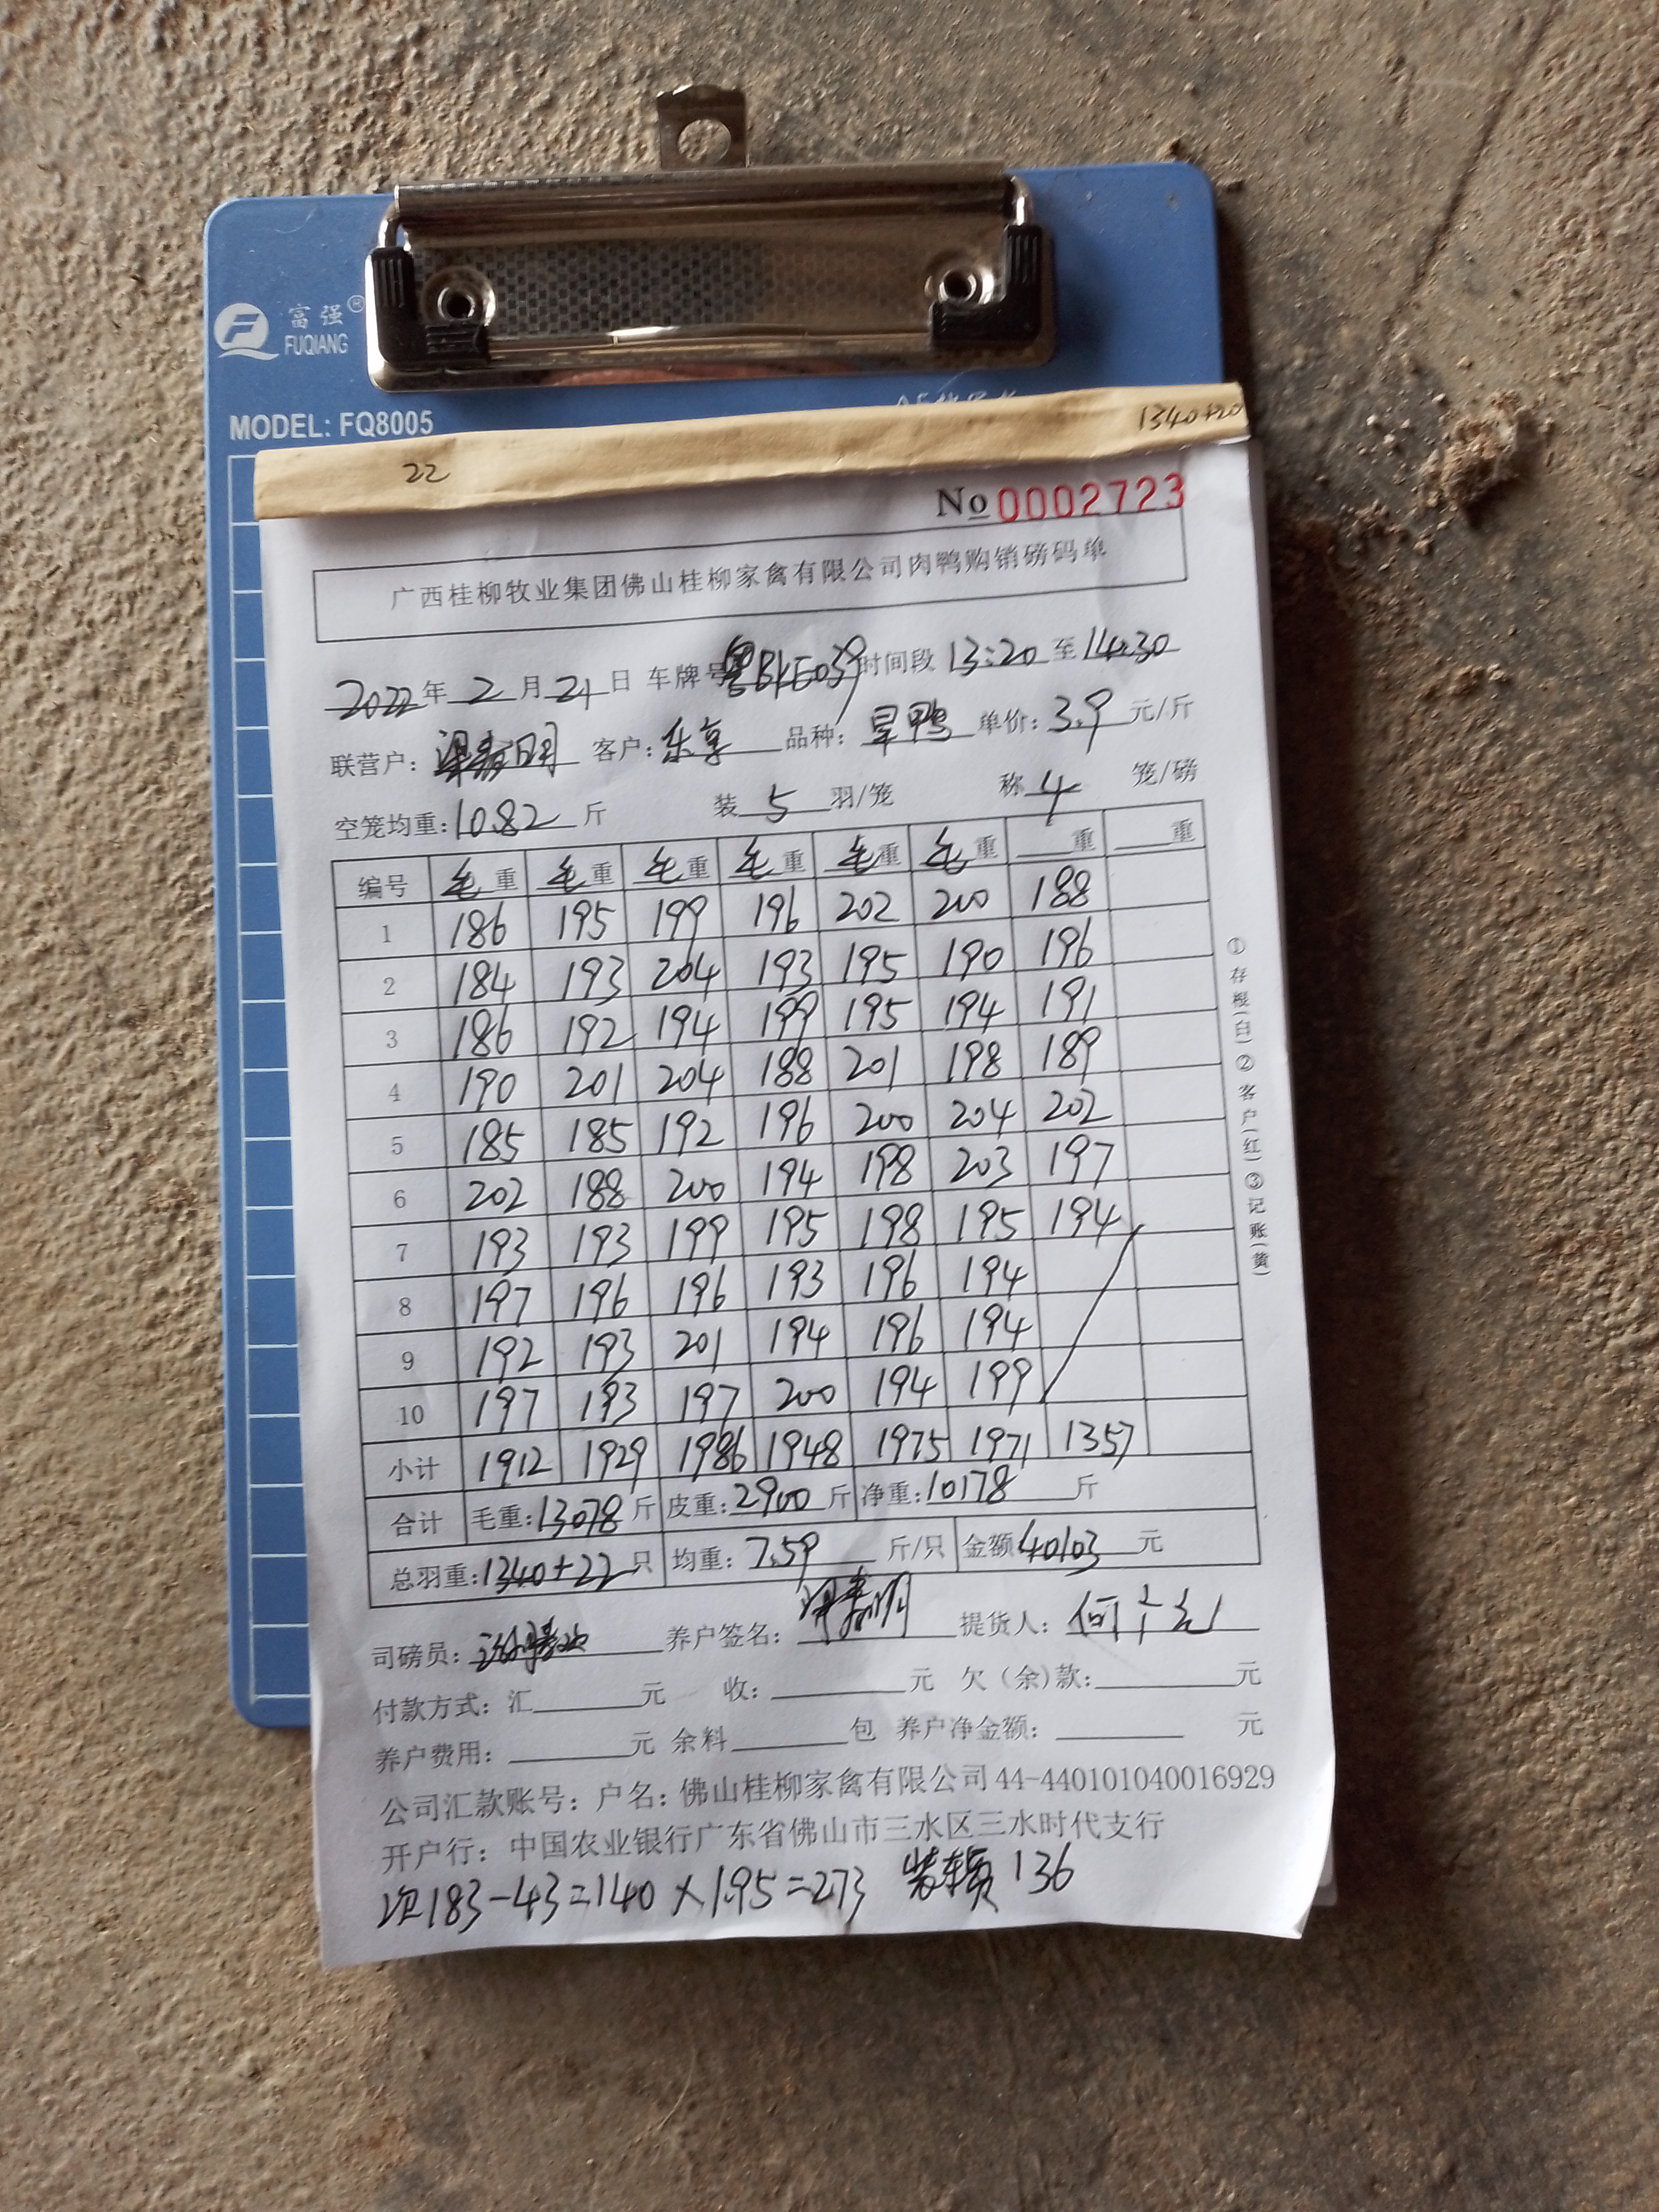 富强®
FUQIANG
MODEL: FQ8005
1340+20
22
No 0002723
广西桂柳牧业集团佛山桂柳家禽有限公司肉鸭购销磅码单
2022年 2 月 21 日 车牌号 粤BKE039 时间段 13:20 至 14:30
联营户: 客户: 乐享 品种: 旱鸭 单价: 3.9 元/斤
空笼均重: 10.82 斤 装 5 羽/笼 称 4 笼/磅
编号 毛重 毛重 毛重 毛重 毛重 毛重 重 重
1 186 195 199 196 202 200 188
2 184 193 204 193 195 190 196
3 186 192 194 199 195 194 191
4 190 201 204 188 201 198 189
5 185 185 192 196 200 204 202
6 202 188 200 194 198 203 197
7 193 193 199 195 198 195 194
8 197 196 196 193 196 194
9 192 193 201 194 196 194
10 197 193 197 200 194 199
小计 1912 1929 1986 1948 1975 1971 1357
合计 毛重: 13078 斤 皮重: 2900 斤 净重: 10178 斤
总羽重: 1340+22 只 均重: 7.59 斤/只 金额 40103 元
司磅员: 养户签名: 提货人: 何
付款方式: 汇 元 收: 元 欠(余)款: 元
养户费用: 元 余料 包 养户净金额: 元
公司汇款账号: 户名: 佛山桂柳家禽有限公司 44-440101040016929
开户行: 中国农业银行广东省佛山市三水区三水时代支行
次183-43=140×1.95=273 装车费 136
①存根(白)②客户(红)③记账(黄)